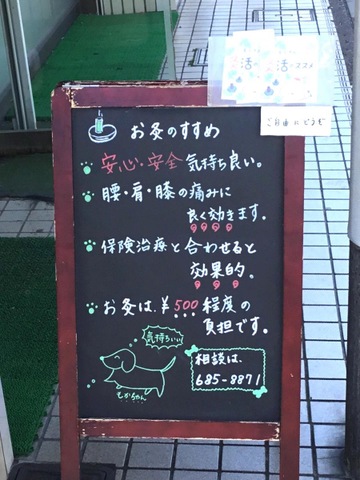 活 活
のススメ
ご自由にどうぞ
お灸のすすめ
安心・安全 気持ち良い。
腰・肩・膝の痛みに
良く効きます。
保険治療と合わせると
効果的。
お灸は、¥500程度の
負担です。
気持ちいい
もかちゃん
相談は、
685-8871